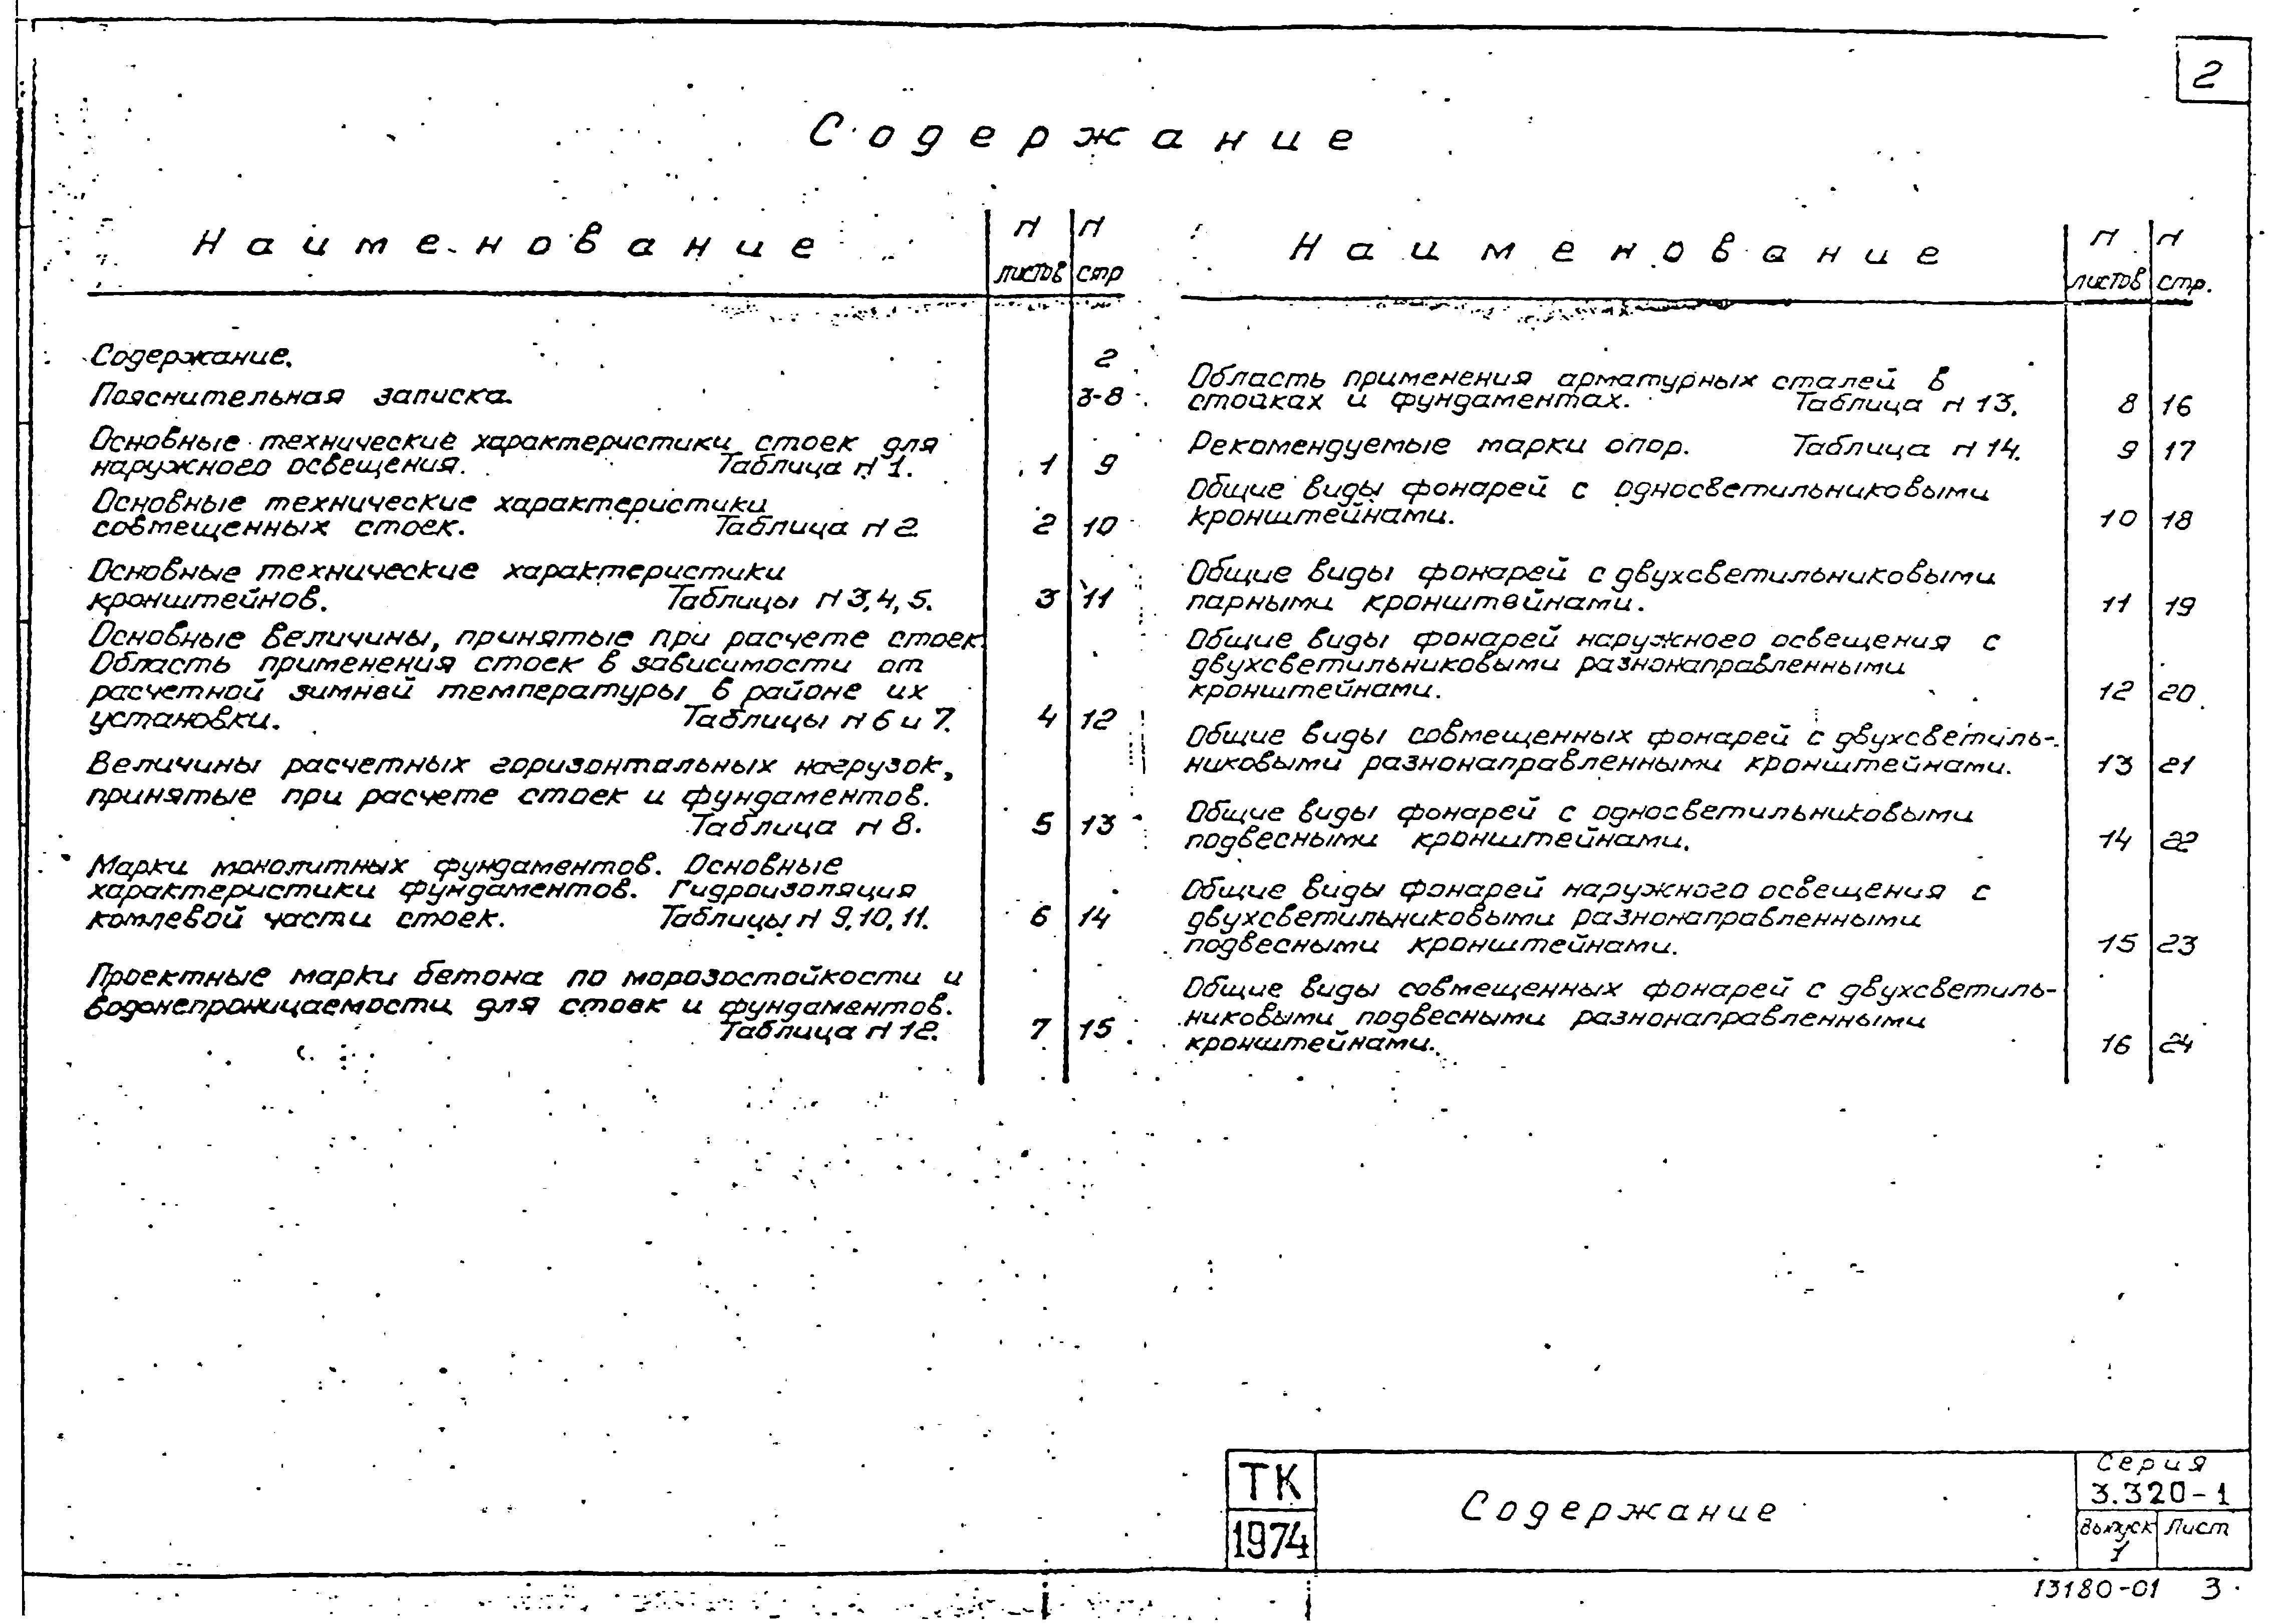 2
Содержание
Наименование
N листов
N стр
Содержание. 2
Пояснительная записка. 3-8
Основные технические характеристики стоек для
наружного освещения. Таблица N 1. 1 9
Основные технические характеристики
совмещенных стоек. Таблица N 2 2 10
Основные технические характеристики
кронштейнов. Таблицы N 3,4,5. 3 11
Основные величины, принятые при расчете стоек.
Область применения стоек в зависимости от
расчетной зимней температуры в районе их
установки. Таблицы N 6 и 7. 4 12
Величины расчетных горизонтальных нагрузок,
принятые при расчете стоек и фундаментов.
Таблица N 8. 5 13
Марки монолитных фундаментов. Основные
характеристики фундаментов. Гидроизоляция
комлевой части стоек. Таблицы N 9,10,11. 6 14
Проектные марки бетона по морозостойкости и
водонепроницаемости для стоек и фундаментов.
Таблица N 12. 7 15
Наименование
N листов
N стр.
Область применения арматурных сталей в
стойках и фундаментах. Таблица N 13. 8 16
Рекомендуемые марки опор. Таблица N 14. 9 17
Общие виды фонарей с односветильниковыми
кронштейнами. 10 18
Общие виды фонарей с двухсветильниковыми
парными кронштейнами. 11 19
Общие виды фонарей наружного освещения с
двухсветильниковыми разнонаправленными
кронштейнами. 12 20
Общие виды совмещенных фонарей с двухсветиль-
никовыми разнонаправленными кронштейнами. 13 21
Общие виды фонарей с односветильниковыми
подвесными кронштейнами. 14 22
Общие виды фонарей наружного освещения с
двухсветильниковыми разнонаправленными
подвесными кронштейнами. 15 23
Общие виды совмещенных фонарей с двухсветиль-
никовыми подвесными разнонаправленными
кронштейнами. 16 24
ТК
1974
Содержание
Серия
3.320-1
Выпуск
1
Лист
13180-01 3